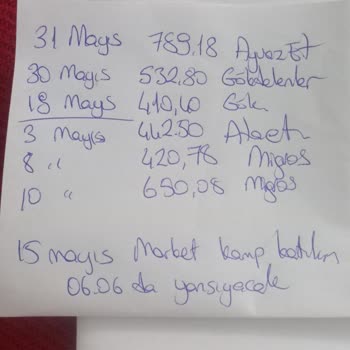 31 Mayıs 789,18 Ayvaz Et
30 Mayıs 532,80 Göbelenler
18 Mayıs 410,40
3 Mayıs 442.50
8 " 420,78 Migros
10 " 650,08 Migros
15 mayıs Market kamp
06.06 da yansıyacak